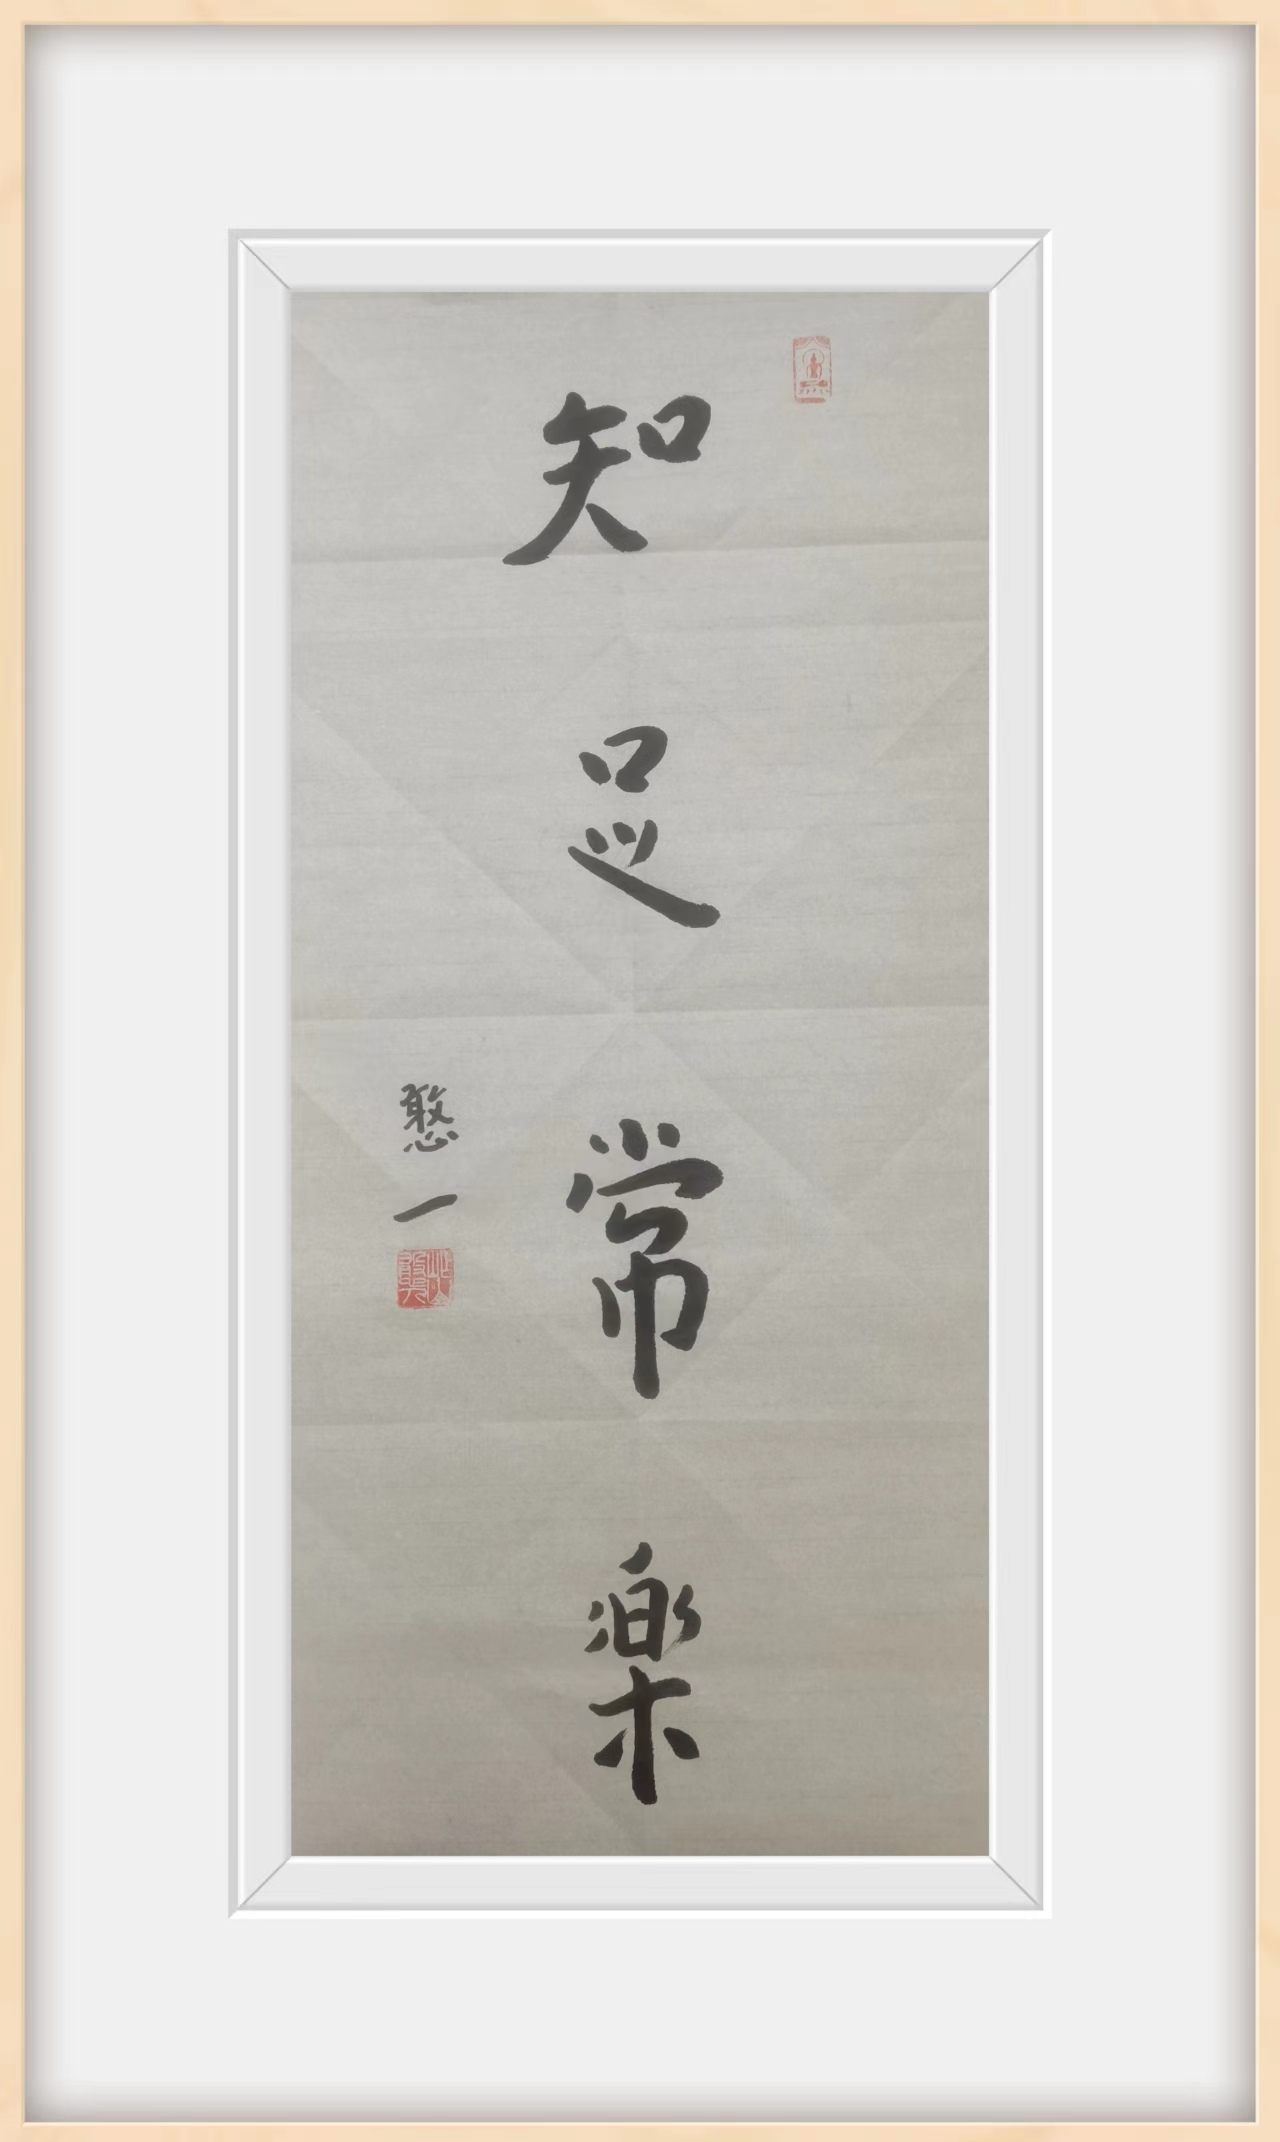 知足常樂
憨一